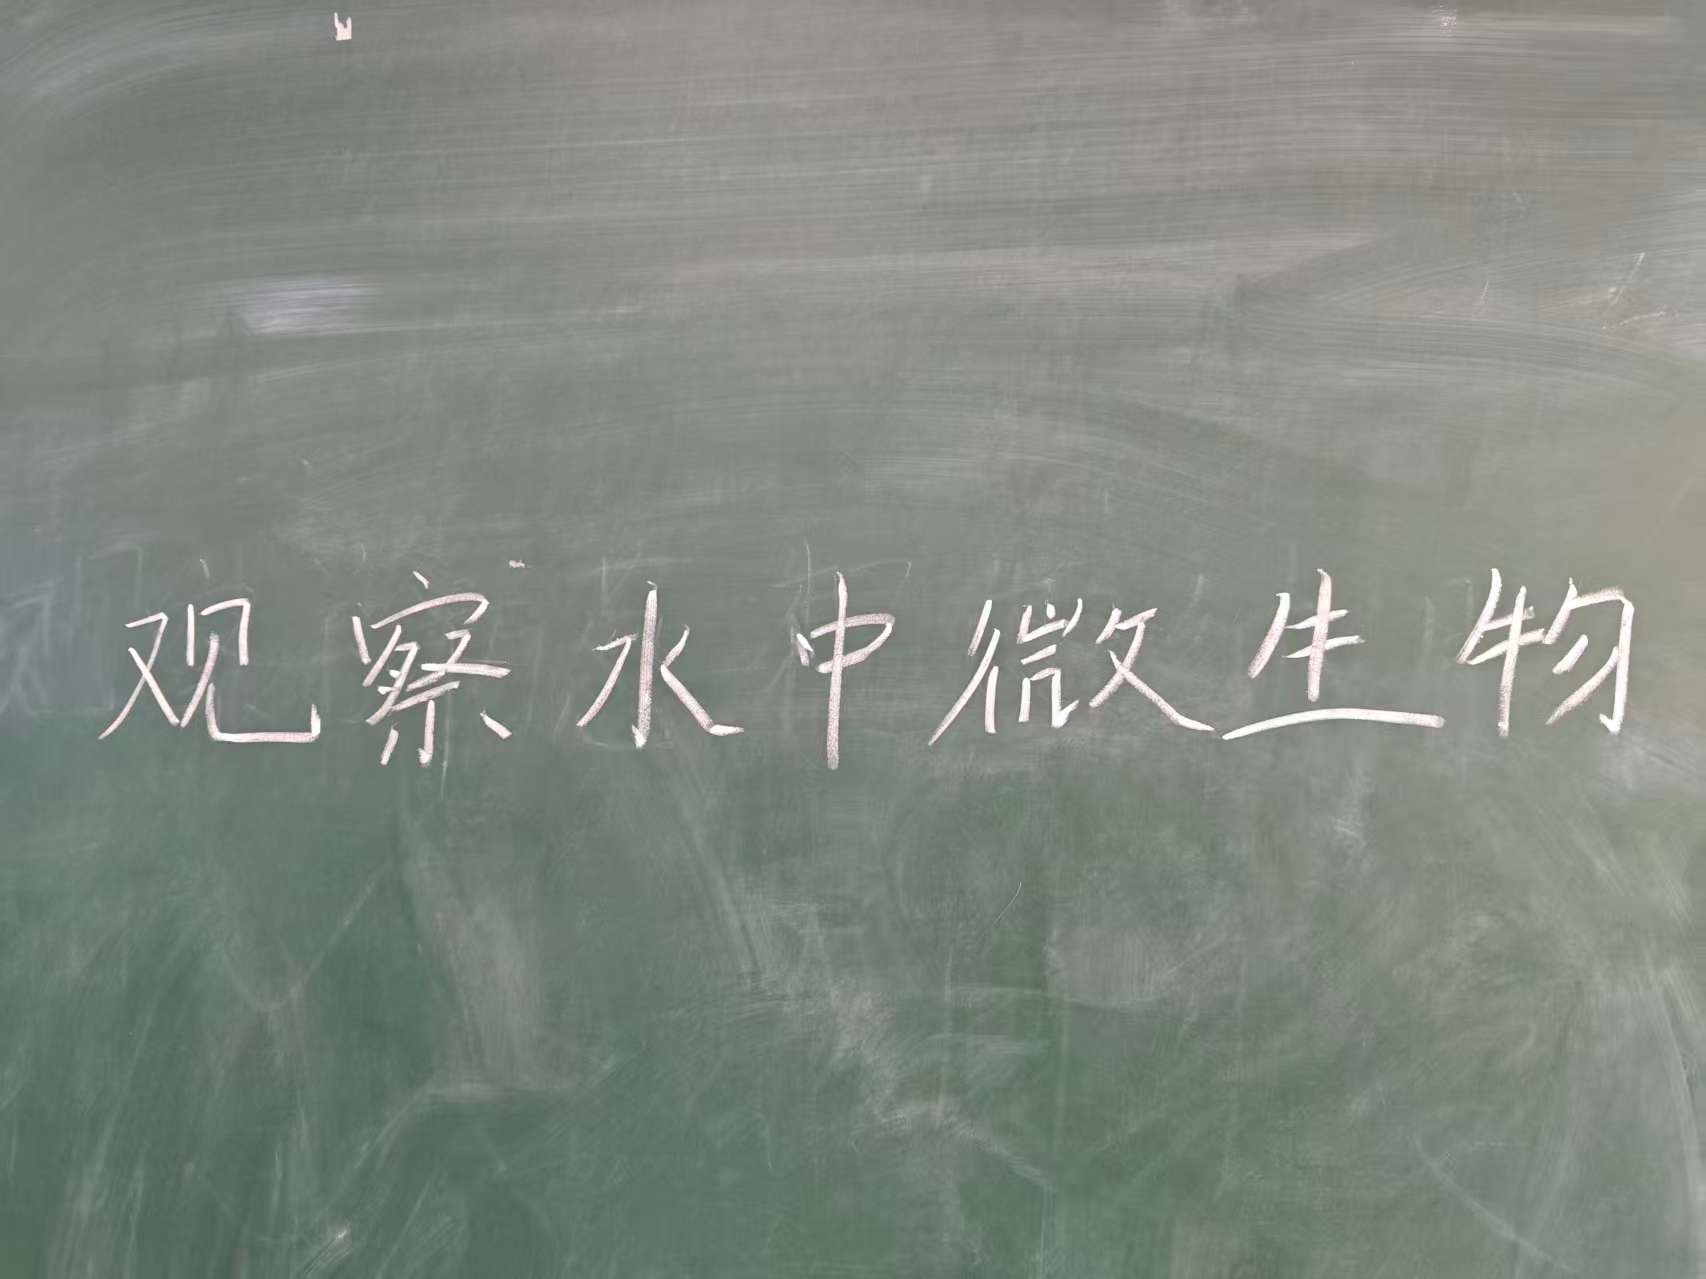 观察水中微生物